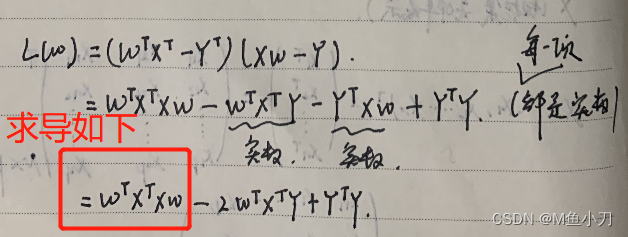 L(w) = (w^T X^T - Y^T)(Xw - Y).
= w^T X^T Xw - w^T X^T Y - Y^T Xw + Y^T Y.
每一项
(都是实数)
实数.
实数.
求导如下
= w^T X^T Xw - 2w^T X^T Y + Y^T Y.
CSDN @M鱼小刀